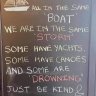 ALL IN THE SAME
"BOAT"
WE ARE IN THE SAME
STORM
SOME HAVE YACHTS
SOME HAVE CANOES
AND SOME ARE
"DROWNING"
JUST BE KIND